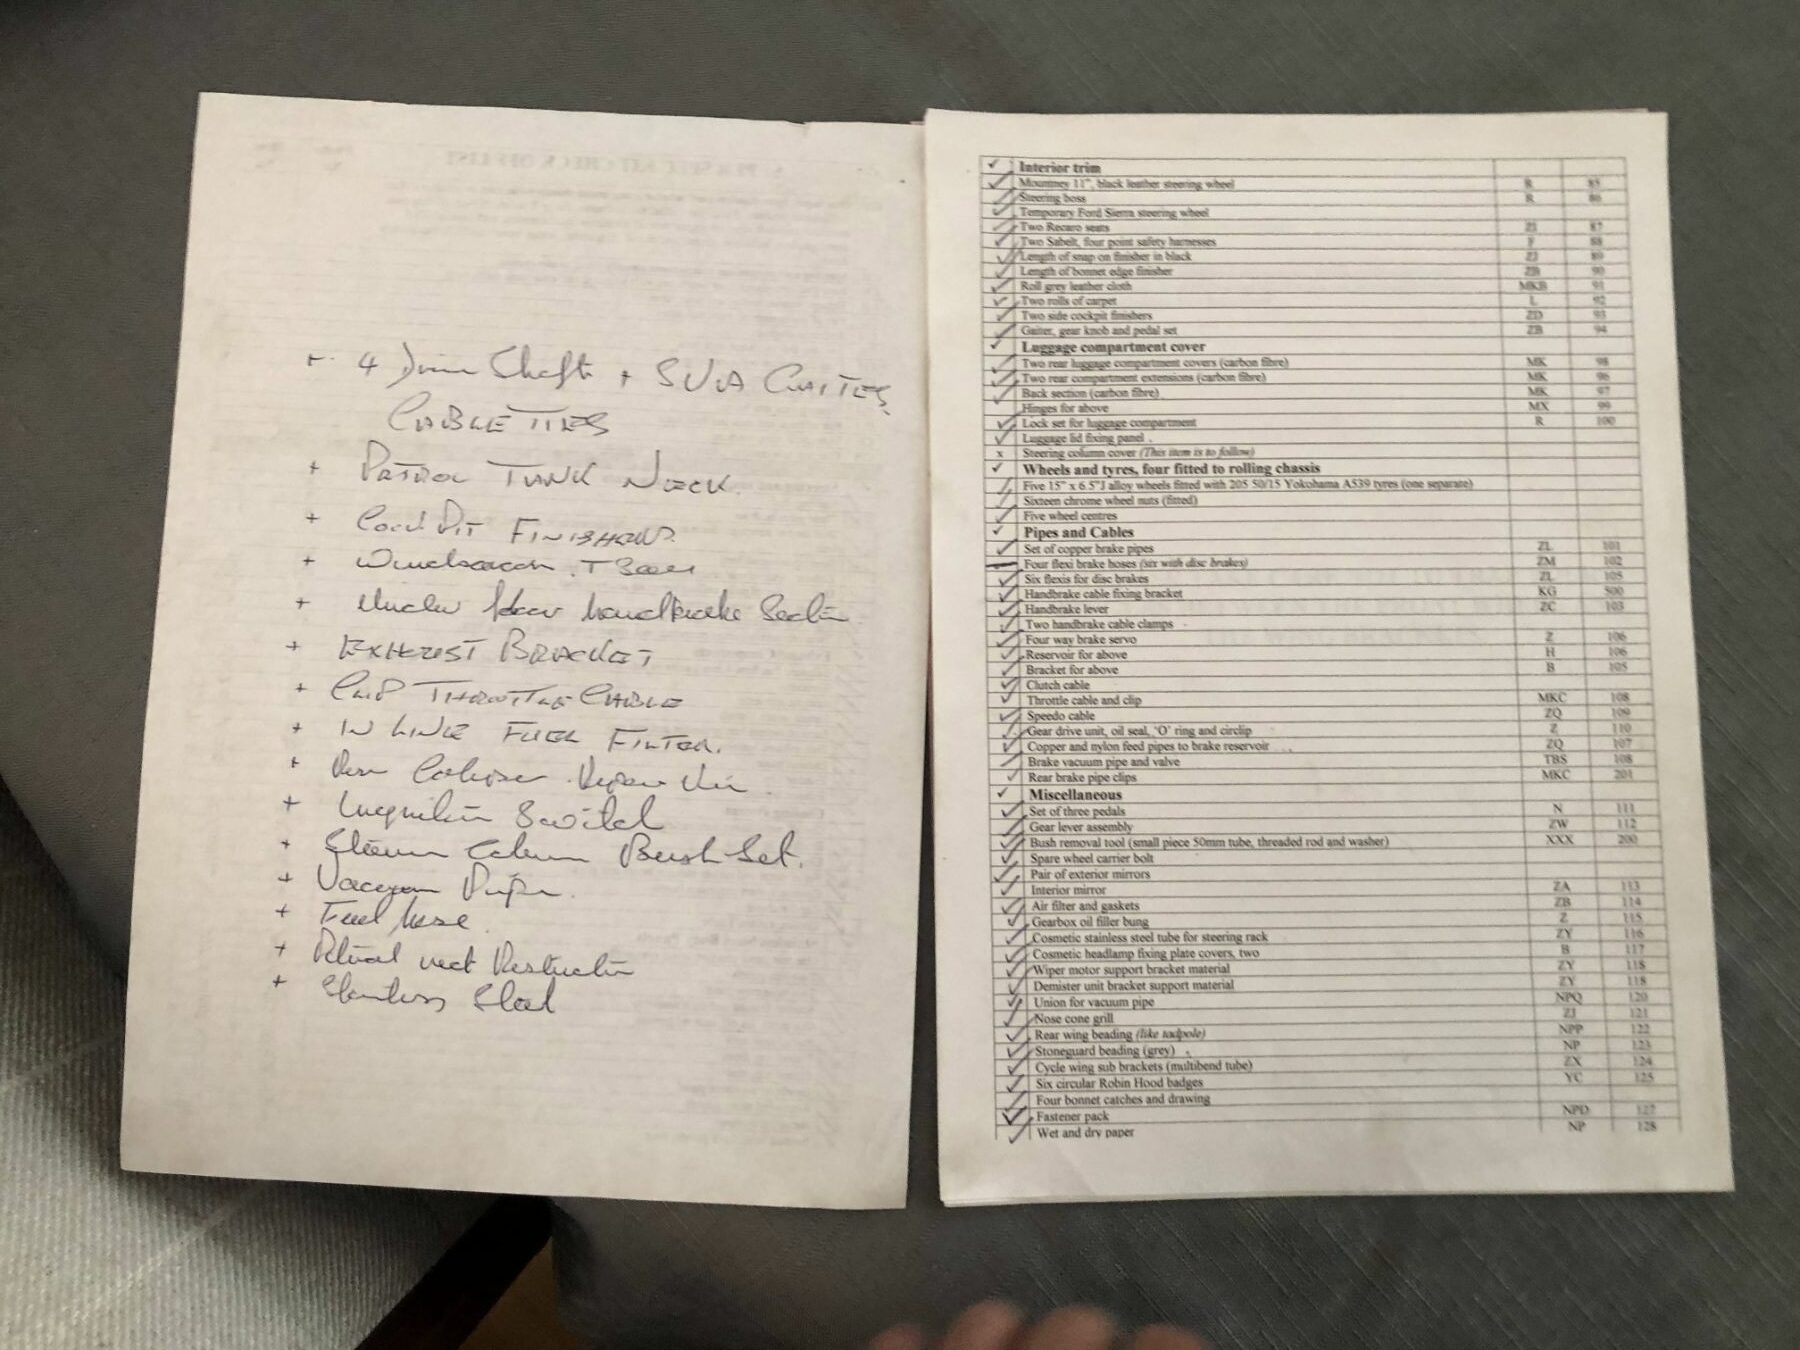 + 4 Drive Shaft + SVA GAITES
CABLE TIES
+ PATROL TANK NECK
+ COCKPIT FINISHERS
+
+ Under floor handbrake Section
+ EXHUST BRACKET
+ CLIP THROTTLE CABLE
+ IN LINE FUEL FILTER.
+
+ Switch
+ Column Bush Set.
+ Vacuum Pipe.
+ Fuel hose
+
+ Stainless Steel
✓ Interior trim
✓ Mountney 11", black leather steering wheel R 85
✓ Steering boss R 86
✓ Temporary Ford Sierra steering wheel
✓ Two Recaro seats ZI 87
✓ Two Sabelt, four point safety harnesses F 88
✓ Length of snap on finisher in black ZJ 89
✓ Length of bonnet edge finisher ZB 90
✓ Roll grey leather cloth MKB 91
✓ Two rolls of carpet L 92
✓ Two side cockpit finishers ZD 93
✓ Gaiter, gear knob and pedal set ZB 94
✓ Luggage compartment cover
✓ Two rear luggage compartment covers (carbon fibre) MK 98
✓ Two rear compartment extensions (carbon fibre) MK 96
✓ Back section (carbon fibre) MK 97
Hinges for above MX 99
✓ Lock set for luggage compartment R 100
✓ Luggage lid fixing panel .
x Steering column cover (This item is to follow)
✓ Wheels and tyres, four fitted to rolling chassis
✓ Five 15" x 6.5"J alloy wheels fitted with 205 50/15 Yokohama A539 tyres (one separate)
✓ Sixteen chrome wheel nuts (fitted)
✓ Five wheel centres
✓ Pipes and Cables
✓ Set of copper brake pipes ZL 101
— Four flexi brake hoses (six with disc brakes) ZM 102
✓ Six flexis for disc brakes ZL 105
✓ Handbrake cable fixing bracket KG 500
✓ Handbrake lever ZC 103
✓ Two handbrake cable clamps
✓ Four way brake servo Z 106
✓ Reservoir for above H 106
✓ Bracket for above B 105
✓ Clutch cable
✓ Throttle cable and clip MKC 108
✓ Speedo cable ZQ 109
✓ Gear drive unit, oil seal, 'O' ring and circlip Z 110
✓ Copper and nylon feed pipes to brake reservoir ZQ 107
✓ Brake vacuum pipe and valve TBS 108
✓ Rear brake pipe clips MKC 201
✓ Miscellaneous
✓ Set of three pedals N 111
✓ Gear lever assembly ZW 112
✓ Bush removal tool (small piece 50mm tube, threaded rod and washer) XXX 200
✓ Spare wheel carrier bolt
✓ Pair of exterior mirrors
✓ Interior mirror ZA 113
✓ Air filter and gaskets ZB 114
✓ Gearbox oil filler bung Z 115
✓ Cosmetic stainless steel tube for steering rack ZY 116
✓ Cosmetic headlamp fixing plate covers, two B 117
✓ Wiper motor support bracket material ZY 118
✓ Demister unit bracket support material ZY 118
✓ Union for vacuum pipe NPQ 120
✓ Nose cone grill ZJ 121
✓ Rear wing beading (like tadpole) NPP 122
✓ Stoneguard beading (grey) NP 123
✓ Cycle wing sub brackets (multibend tube) ZX 124
✓ Six circular Robin Hood badges YC 125
✓ Four bonnet catches and drawing
✓ Fastener pack NPD 127
✓ Wet and dry paper NP 128